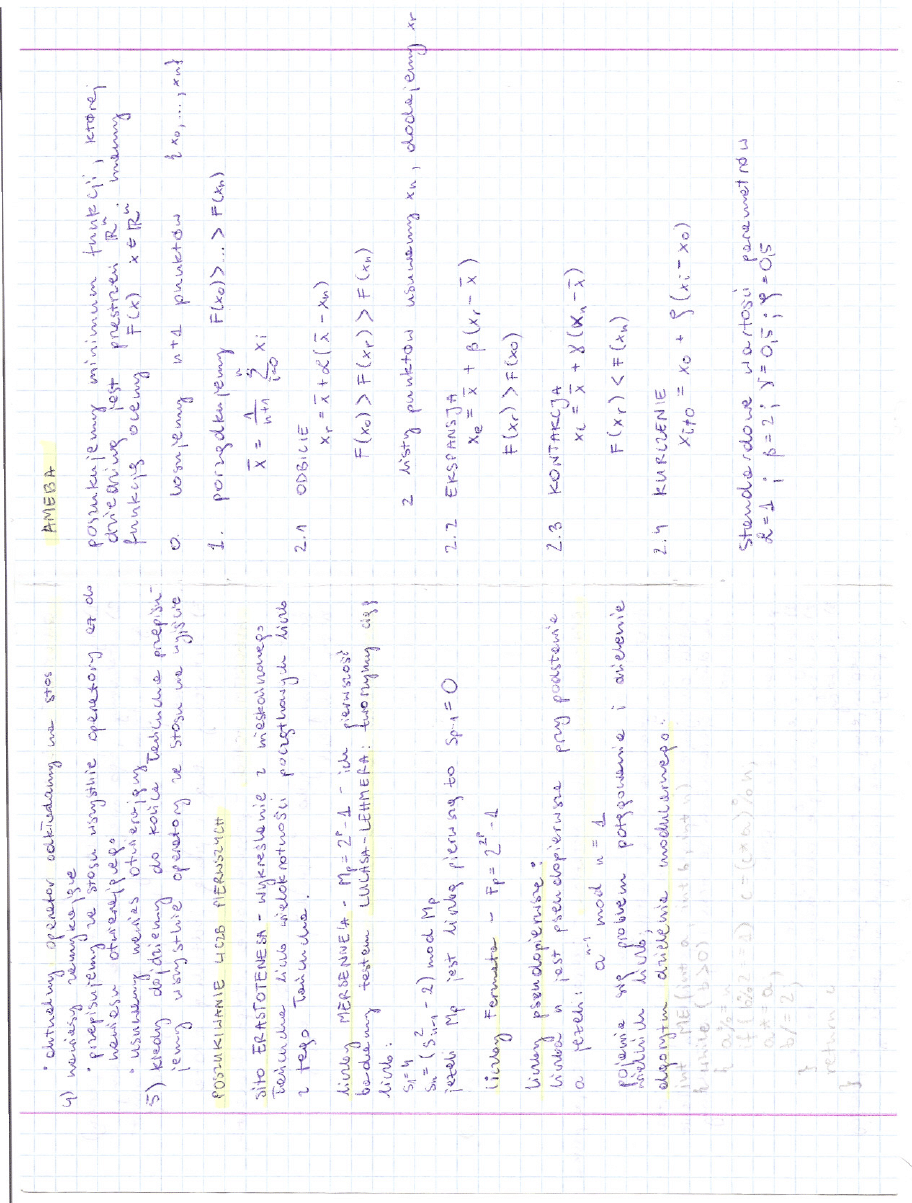 • aktualny operator odkładamy na stos
4) nawiasy zamykające
• przepisujemy ze stosu wszystkie operatory aż do
nawiasu otwierającego
• usuwamy nawias otwierający
5) kiedy dojdziemy do końca łańcucha przepisu-
jemy wszystkie operatory ze stosu na wyjście
POSZUKIWANIE LICZB PIERWSZYCH
sito ERASTOTENESA - wykreślenie z
łańcucha liczb wielokrotności początkowych liczb
z tego łańcucha.
liczby MERSENNE'A - Mp = 2^p - 1 - ich pierwszość
badamy testem LUCASA-LEHMERA: tworzymy ciąg
liczb:
s₁=4
sₙ = (s²ₙ₋₁ - 2) mod Mp
jeżeli Mp jest liczbą pierwszą to sp-1 = 0
liczby Fermata - Fp = 2^2^p - 1
liczby pseudopierwsze:
liczba n jest pseudopierwsza przy podstawie
a jeżeli: a^n-1 mod n = 1
pojawia się problem potęgowanie i dzielenie
wielkich liczb;
algorytm dzielenia modularnego:
int ME (int a, int b, int n)
while (b>0)
{ a%=n
if (b%2==1) c=(c*a)%n,
a*=a
b/=2;
}
return c
}
AMEBA
poszukujemy minimum funkcji, której
dziedziną jest przestrzeń ℝⁿ.
funkcję oceny F(x) x∈ℝⁿ
0. losujemy n+1 punktów {x₀,...,xₙ}
1. porządkujemy F(x₀)>...>F(xₙ)
x̄ = 1/(n+1) Σ_{i=0}^{n} xᵢ
2.1 ODBICIE
xᵣ = x̄ + α(x̄ - xₙ)
F(x₀)>F(xᵣ)>F(xₙ)
z listy punktów usuwamy xₙ, dodajemy xᵣ
2.2 EKSPANSJA
xₑ = x̄ + β(xᵣ - x̄)
F(xᵣ)>F(x₀)
2.3 KONTAKCJA
xᵢ = x̄ + γ(xₙ - x̄)
F(xᵣ)<F(xₙ)
2.4 KURCZENIE
x_{i≠0} = x₀ + ρ(xᵢ - x₀)
standardowe wartości parametrów
α=1 ; β=2 ; γ=0,5 ; ρ=0,5